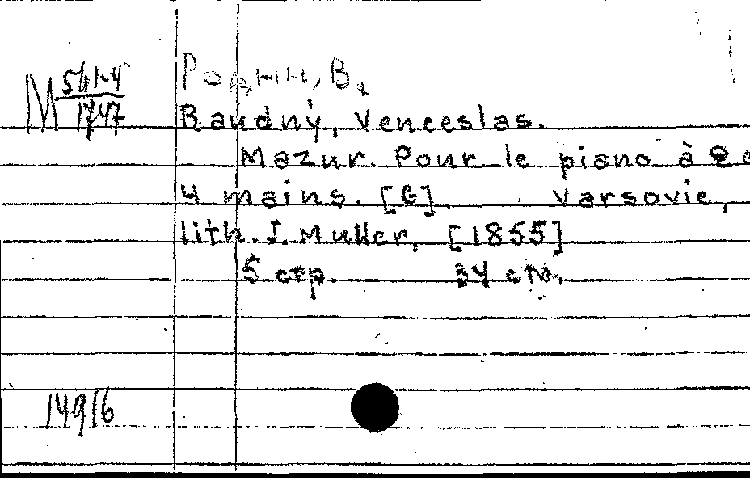 М 561-4
1747
В.
Raudný, Venceslas.
Mazur. Pour le piano à 2 o
4 mains. [G]. Varsovie,
lith. J. Muller, [1855]
5 стр. 34 стм.
14916